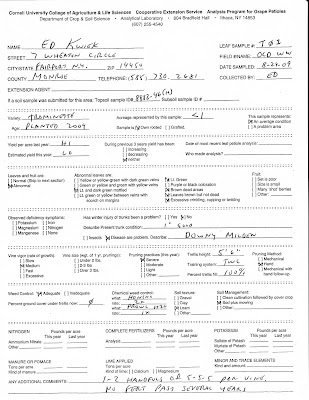 Cornell University College of Agriculture & Life Sciences Cooperative Extension Service Analysis Program for Grape Petioles
Department of Crop & Soil Science - Analytical Laboratory - 804 Bradfield Hall - Ithaca, NY 14853
(607) 255-4540
NAME ED KWIEK LEAF SAMPLE #
STREET 7 WHEATON CIRCLE FIELD NAME OLD VW
CITY/STATE FAIRPORT NY. ZIP 14450 DATE SAMPLED 8-22-09
COUNTY MONROE TELEPHONE: COLLECTED BY ED
EXTENSION AGENT
If a soil sample was submitted for this area: Topsoil sample Subsoil sample ID #
Variety TRAMINETTE Acreage represented by this sample: <1 This sample represents:
An average condition
Age PLANTED 2004 Sample is Own rooted [ ] Grafted, [ ] A problem area
Yield per acre last year During previous 3 years yield has been: Date of most recent leaf petiole analysis:
[ ] Increasing
Estimated yield this year [ ] decreasing Who made analysis?
neither
Leaves and fruit are: Abnormal leaves are: Fruit:
[ ] Normal (Skip to next section) [ ] Yellow or yellow-green with dark green veins Lt. Green [ ] Set is poor
Abnormal [ ] Green or yellow and green with yellow veins [ ] Purple or black coloration [ ] Size is small
Lt. and dark green mottled Brown dead areas [ ] Many "shot berries"
[ ] Lt. green or yellow between veins with [ ] Leaves brown but not dead [ ] Other
scorch on margins Excessive crinkling, cupping or twisting
Observed deficiency symptoms: Has winter injury of trunks been a problem? [ ] Yes No
[ ] Potassium [ ] Iron Describe Present trunk condition: GOOD
[ ] Magnesium [ ] Nitrogen
[ ] Manganese [ ] None [ ] Insects Disease are problem. Describe: DOWNY MILDEW
Vine vigor (rate of growth). Vine size (wgt. of 1 yr. prunings): Pruning practice (this year): Trellis height 5'6" Pruning Method:
[ ] Slow [ ] Under 2.0 lbs Severe [ ] Mechanical
Medium [ ] 2-3 lbs [ ] Moderate Training system TWC Manual
[ ] Fast [ ] Over 3 lbs [ ] Light [ ] Mechanical with
[ ] Excessive [ ] Other Percent trellis fill 100% hand follow-up
Weed Control: Adequate [ ] Inadequate Chemical weed control: Soil texture: Soil Management:
[ ] Gravel [ ] Clean cultivation followed by cover crop
Percent ground cover under trellis now: [ ] Sand Sod plus mowing
Loam [ ] Other
[ ] Clay
NITROGEN Pounds per acre COMPLETE FERTILIZERS Pounds per acre POTASSIUM Pounds per acre
This year Last year Analysis This year Last year This year Last year
Ammonium Nitrate Sulfate of Potash
Other Muriate of Potash
Other
MANURE OR POMACE LIME APPLIED MINOR AND TRACE ELEMENTS
Tons per acre Tons per acre Kind and amount
Kind of manure Kind of lime: [ ] Calcium [ ] Magnesium
ANY ADDITIONAL COMMENTS 1-2 HANDFULS OF 5-5-5 PER VINE.
NO FERT PAST SEVERAL YEARS